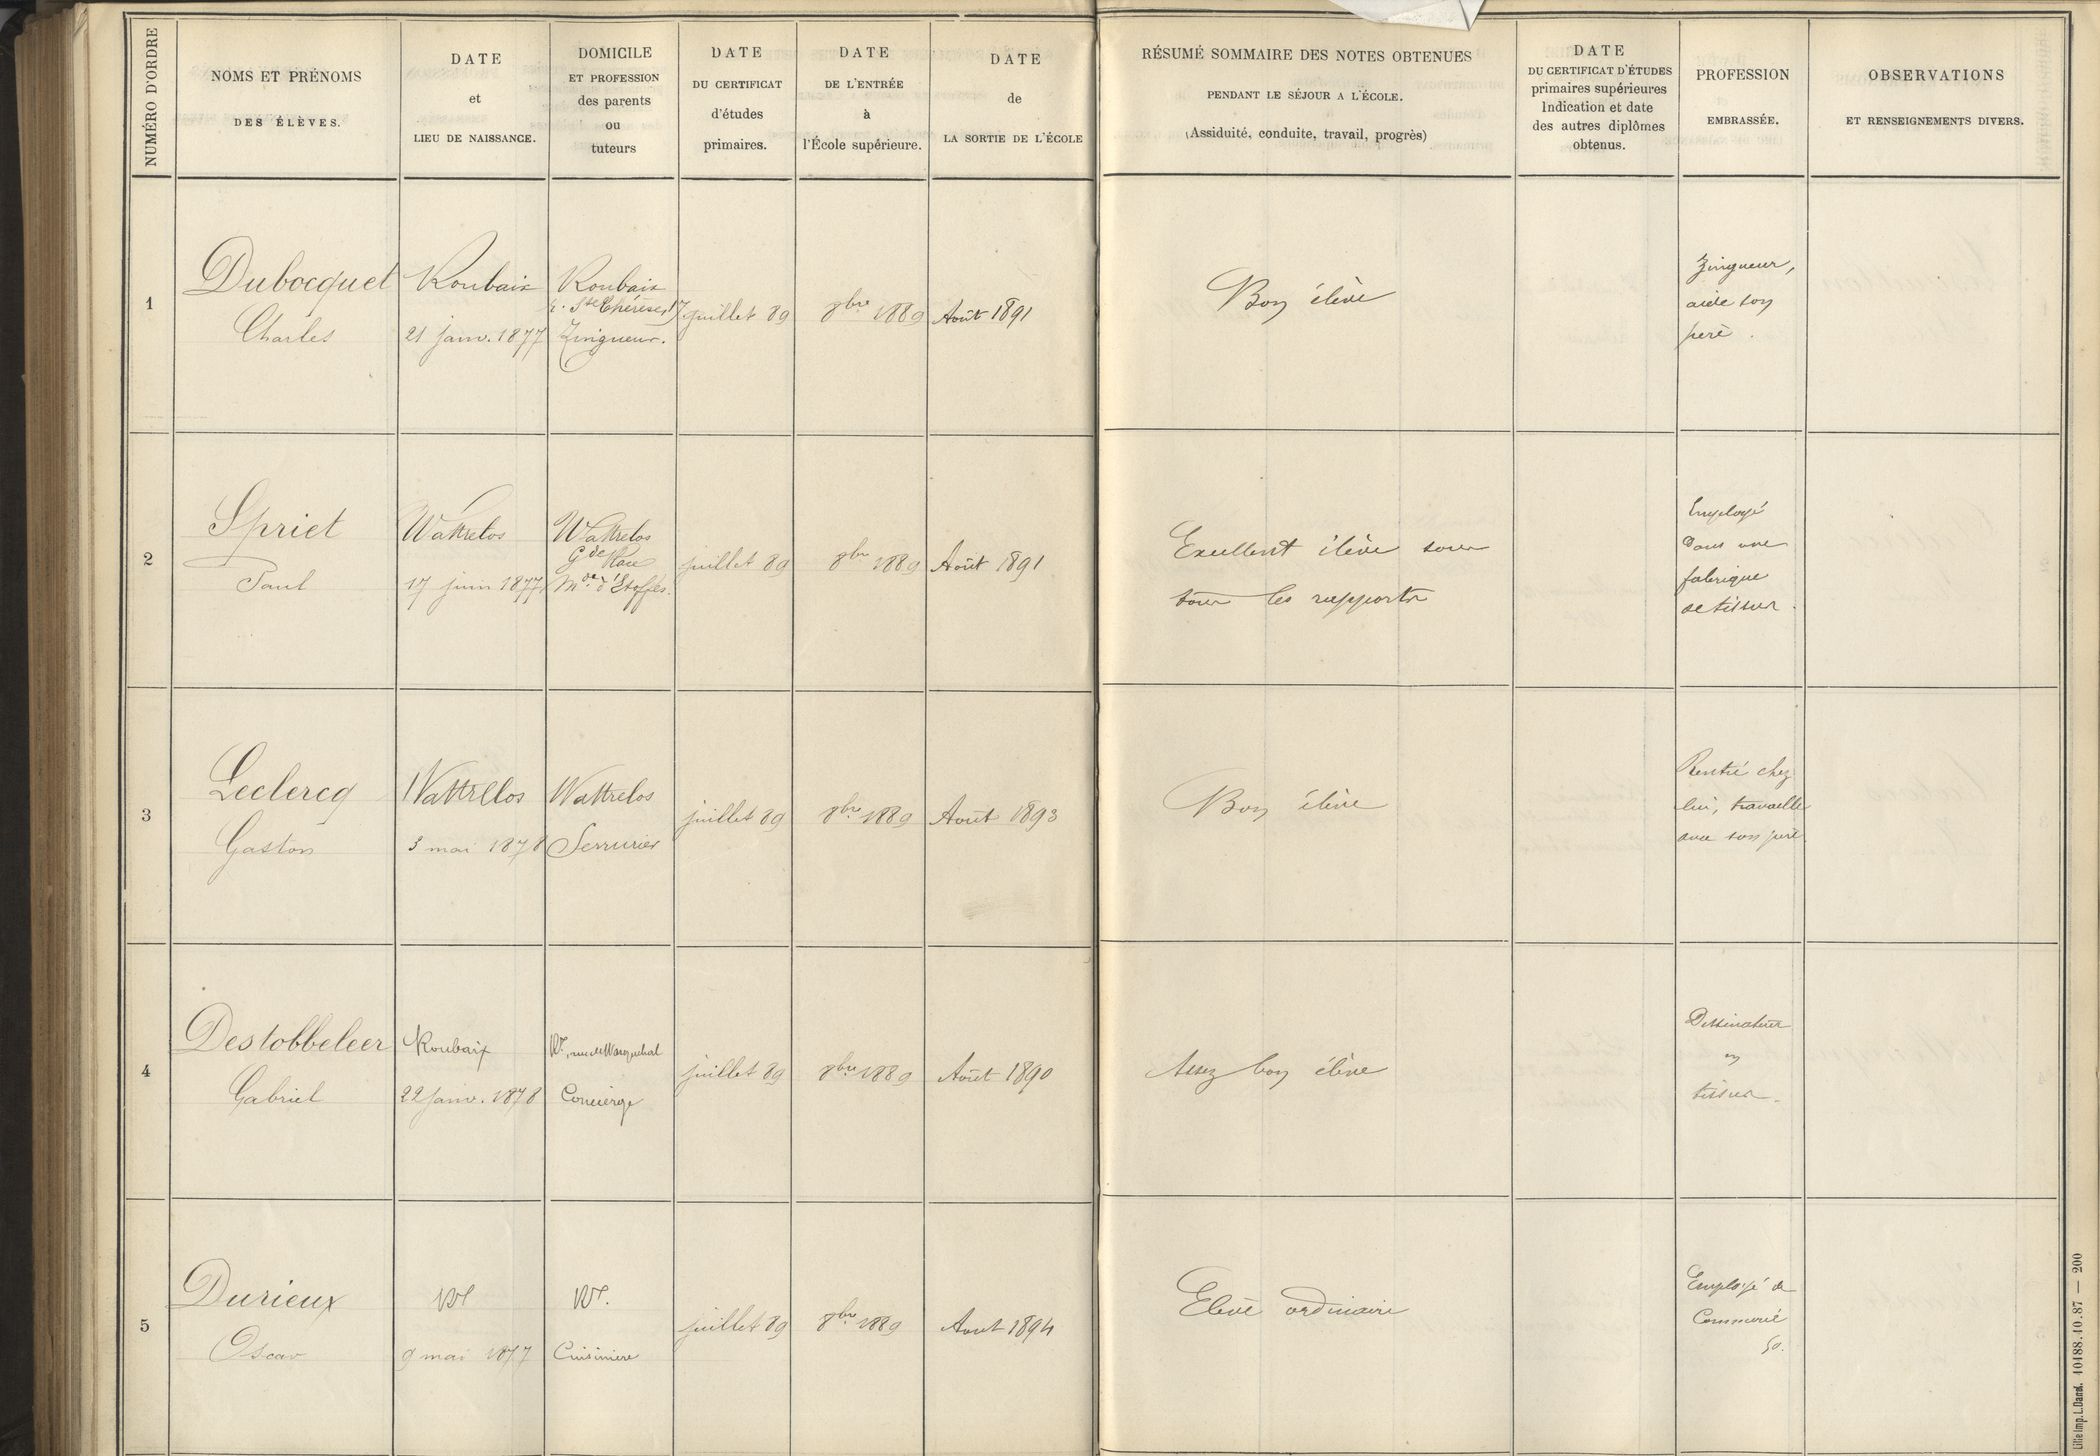 NUMÉRO D'ORDRE
NOMS ET PRÉNOMS
DES ÉLÈVES.
DATE
et
LIEU DE NAISSANCE.
DOMICILE
ET PROFESSION
des parents
ou
tuteurs
DATE
DU CERTIFICAT
d'études
primaires.
DATE
DE L'ENTRÉE
à
l'École supérieure.
DATE
de
LA SORTIE DE L'ÉCOLE
RÉSUMÉ SOMMAIRE DES NOTES OBTENUES
PENDANT LE SÉJOUR A L'ÉCOLE.
(Assiduité, conduite, travail, progrès)
DATE
DU CERTIFICAT D'ÉTUDES
primaires supérieures
Indication et date
des autres diplômes
obtenus.
PROFESSION
EMBRASSÉE.
OBSERVATIONS
ET RENSEIGNEMENTS DIVERS.
1
Dubocquet
Charles
Roubaix
21 janv. 1877
Roubaix
r. Ste Thérèse, 17
Zingueur.
juillet 89
8bre 1889
Août 1891
Bon élève
Zingueur,
aide son
père.
2
Spriet
Paul
Wattrelos
17 juin 1877
Wattrelos
Gde Place
Md d'Etoffes.
juillet 89
8bre 1889
Août 1891
Excellent élève sous
tous les rapports
Employé
dans une
fabrique
de tissus.
3
Leclercq
Gaston
Wattrelos
3 mai 1878
Wattrelos
Serrurier
juillet 89
8bre 1889
Août 1893
Bon élève
Rentré chez
lui, travaille
avec son père
4
Destobbeleer
Gabriel
Roubaix
22 janv. 1878
rue de Wasquehal
Concierge
juillet 89
8bre 1889
Août 1890
Assez bon élève
Dessinateur
en
tissus.
5
Durieux
Oscar
9 mai 1877
Cuisinière
juillet 89
8bre 1889
Aout 1894
Elève ordinaire
Employé de
Commerce
Lille Imp. L. Danel. 10188.10.87 — 200